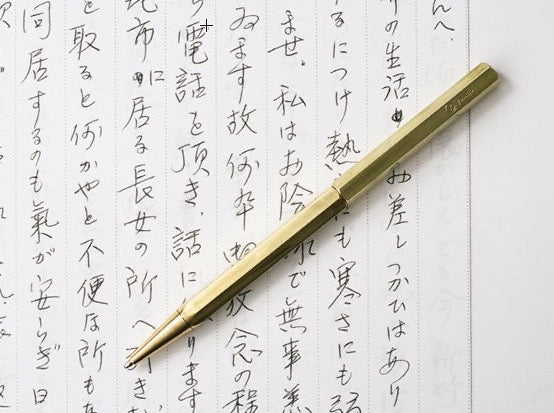 んへ。
の生活も お差しつかひはあり
るにつけ熱 にも寒さにも弱
ませ。私はお陰 で無事
ゐます故何卒 放念の程
電話を頂き、話に ります
市に居る長女の所へ
を取ると何かやと不便な所も
同居するのも氣が安らぎ日